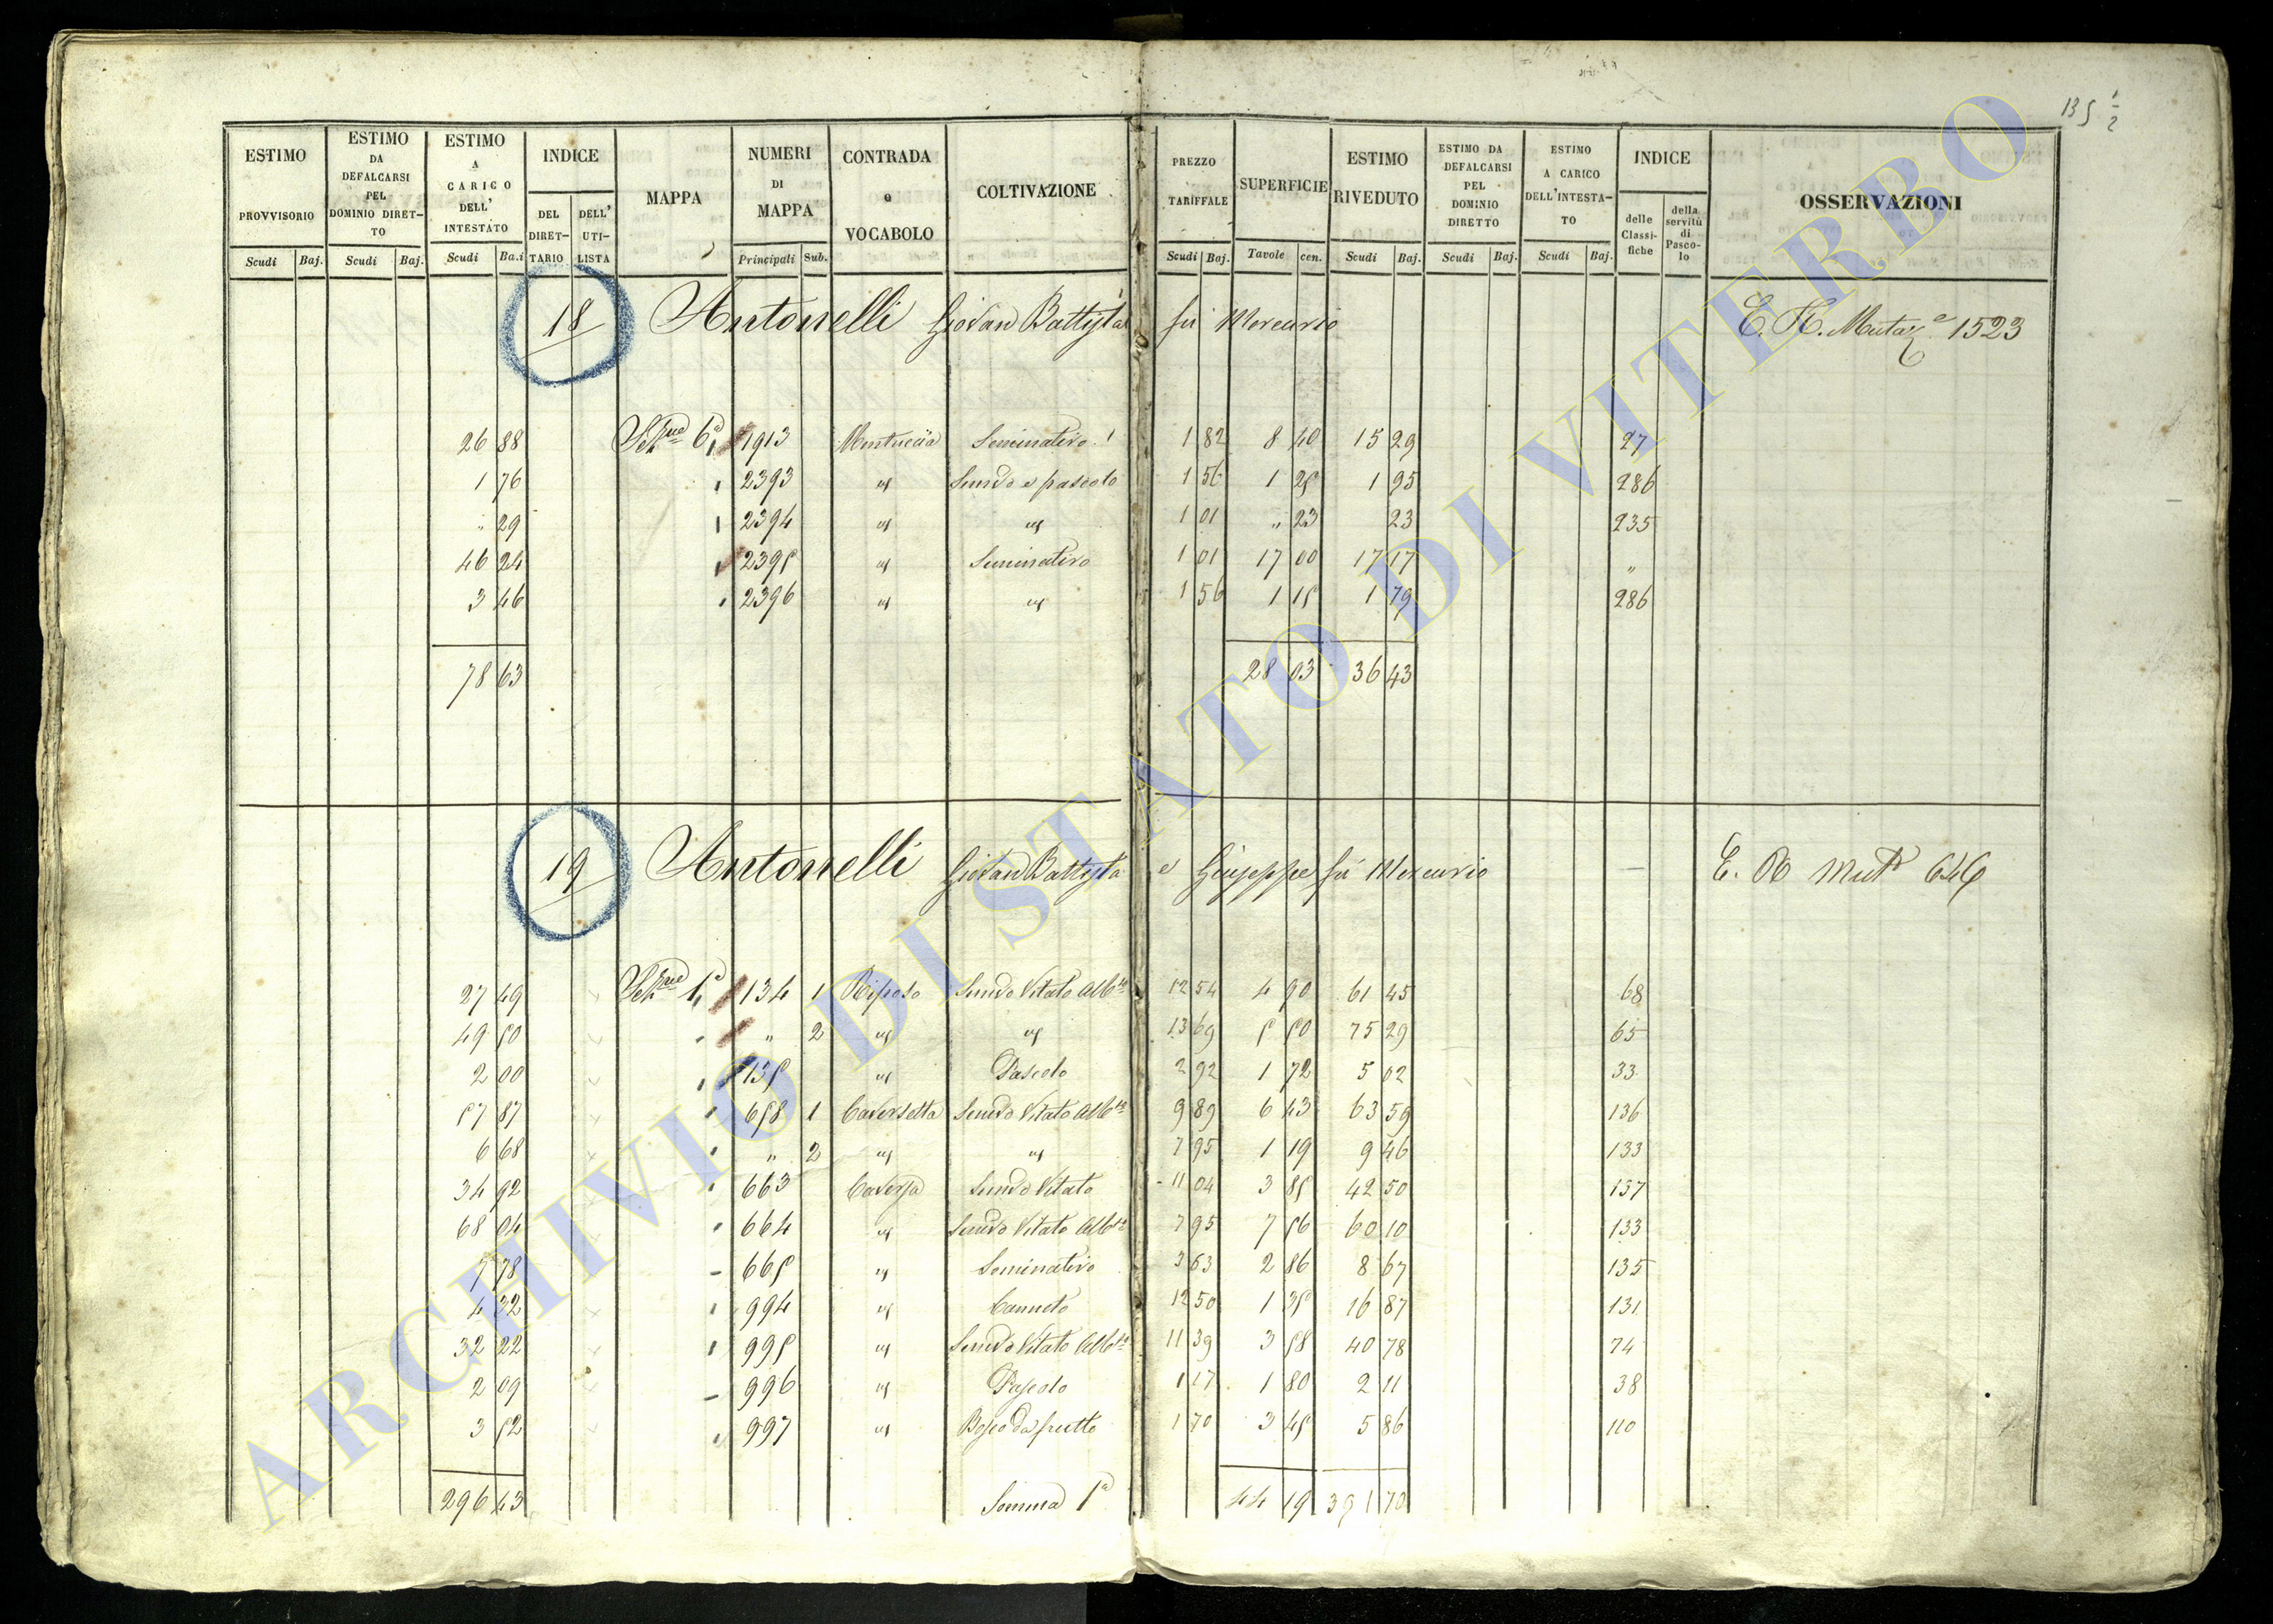 135 1/2
ESTIMO PROVVISORIO | ESTIMO DA DEFALCARSI PEL DOMINIO DIRETTO | ESTIMO A CARICO DELL' INTESTATO | INDICE | MAPPA | NUMERI DI MAPPA | CONTRADA o VOCABOLO | COLTIVAZIONE | PREZZO TARIFFALE | SUPERFICIE | ESTIMO RIVEDUTO | ESTIMO DA DEFALCARSI PEL DOMINIO DIRETTO | ESTIMO A CARICO DELL'INTESTATO | INDICE | OSSERVAZIONI
DEL DIRETTARIO | DELL' UTILISTA | delle Classifiche | della servitù di Pascolo
Scudi | Baj. | Scudi | Baj. | Scudi | Ba.i | Principali | Sub. | Scudi | Baj. | Tavole | cen. | Scudi | Baj. | Scudi | Baj. | Scudi | Baj.
18 Antonelli Giovan Battista fu Mercurio 1523
26 88 | Sezne 6a | 1913 | Montuccia | Seminativo | 1 82 | 8 40 | 15 29 | 27
1 76 | 2393 | " | Semvo e pascolo | 1 56 | 1 25 | 1 95 | 286
" 29 | 2394 | " | " | 1 01 | " 23 | 23 | 235
46 24 | 2395 | " | Seminativo | 1 01 | 17 00 | 17 17 | "
3 46 | 2396 | " | " | 1 56 | 1 15 | 1 79 | 286
78 63 | 28 03 | 36 43
19 Antonelli Giovan Battista e Giuseppe fu Mercurio — 646
27 49 | Sezne 1a | 134 | 1 | Riposo | Semvo Vitato Albto | 12 54 | 4 90 | 61 45 | 68
49 50 | " | 2 | " | " | 13 69 | 5 50 | 75 29 | 65
2 00 | 135 | " | Pascolo | 2 92 | 1 72 | 5 02 | 33
57 87 | 658 | 1 | Caversetta | Semvo Vitato Albto | 9 89 | 6 43 | 63 59 | 136
6 68 | " | 2 | " | " | 7 95 | 1 19 | 9 46 | 133
34 92 | 663 | Caversa | Semvo Vitato | 11 04 | 3 85 | 42 50 | 137
68 04 | 664 | " | Semvo Vitato Albto | 7 95 | 7 56 | 60 10 | 133
7 78 | 665 | " | Seminativo | 3 63 | 2 86 | 8 67 | 135
4 32 | 994 | " | Canneto | 12 50 | 1 35 | 16 87 | 131
32 22 | 995 | " | Semvo Vitato Albto | 11 39 | 3 58 | 40 78 | 74
2 09 | 996 | " | Pascolo | 1 17 | 1 80 | 2 11 | 38
3 52 | 997 | " | Bosco da frutto | 1 70 | 3 45 | 5 86 | 110
296 43 | Somma 1a | 44 19 | 391 70
ARCHIVIO DI STATO DI VITERBO